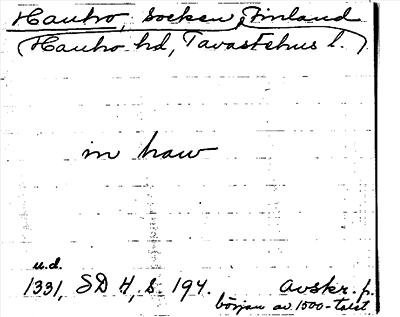 Hauho, socken, Finland
(Hauho hd, Tavastehus l.)
in haw
u.d.
1331, SD 4, s. 194. Avskr. fr.
början av 1500-talet